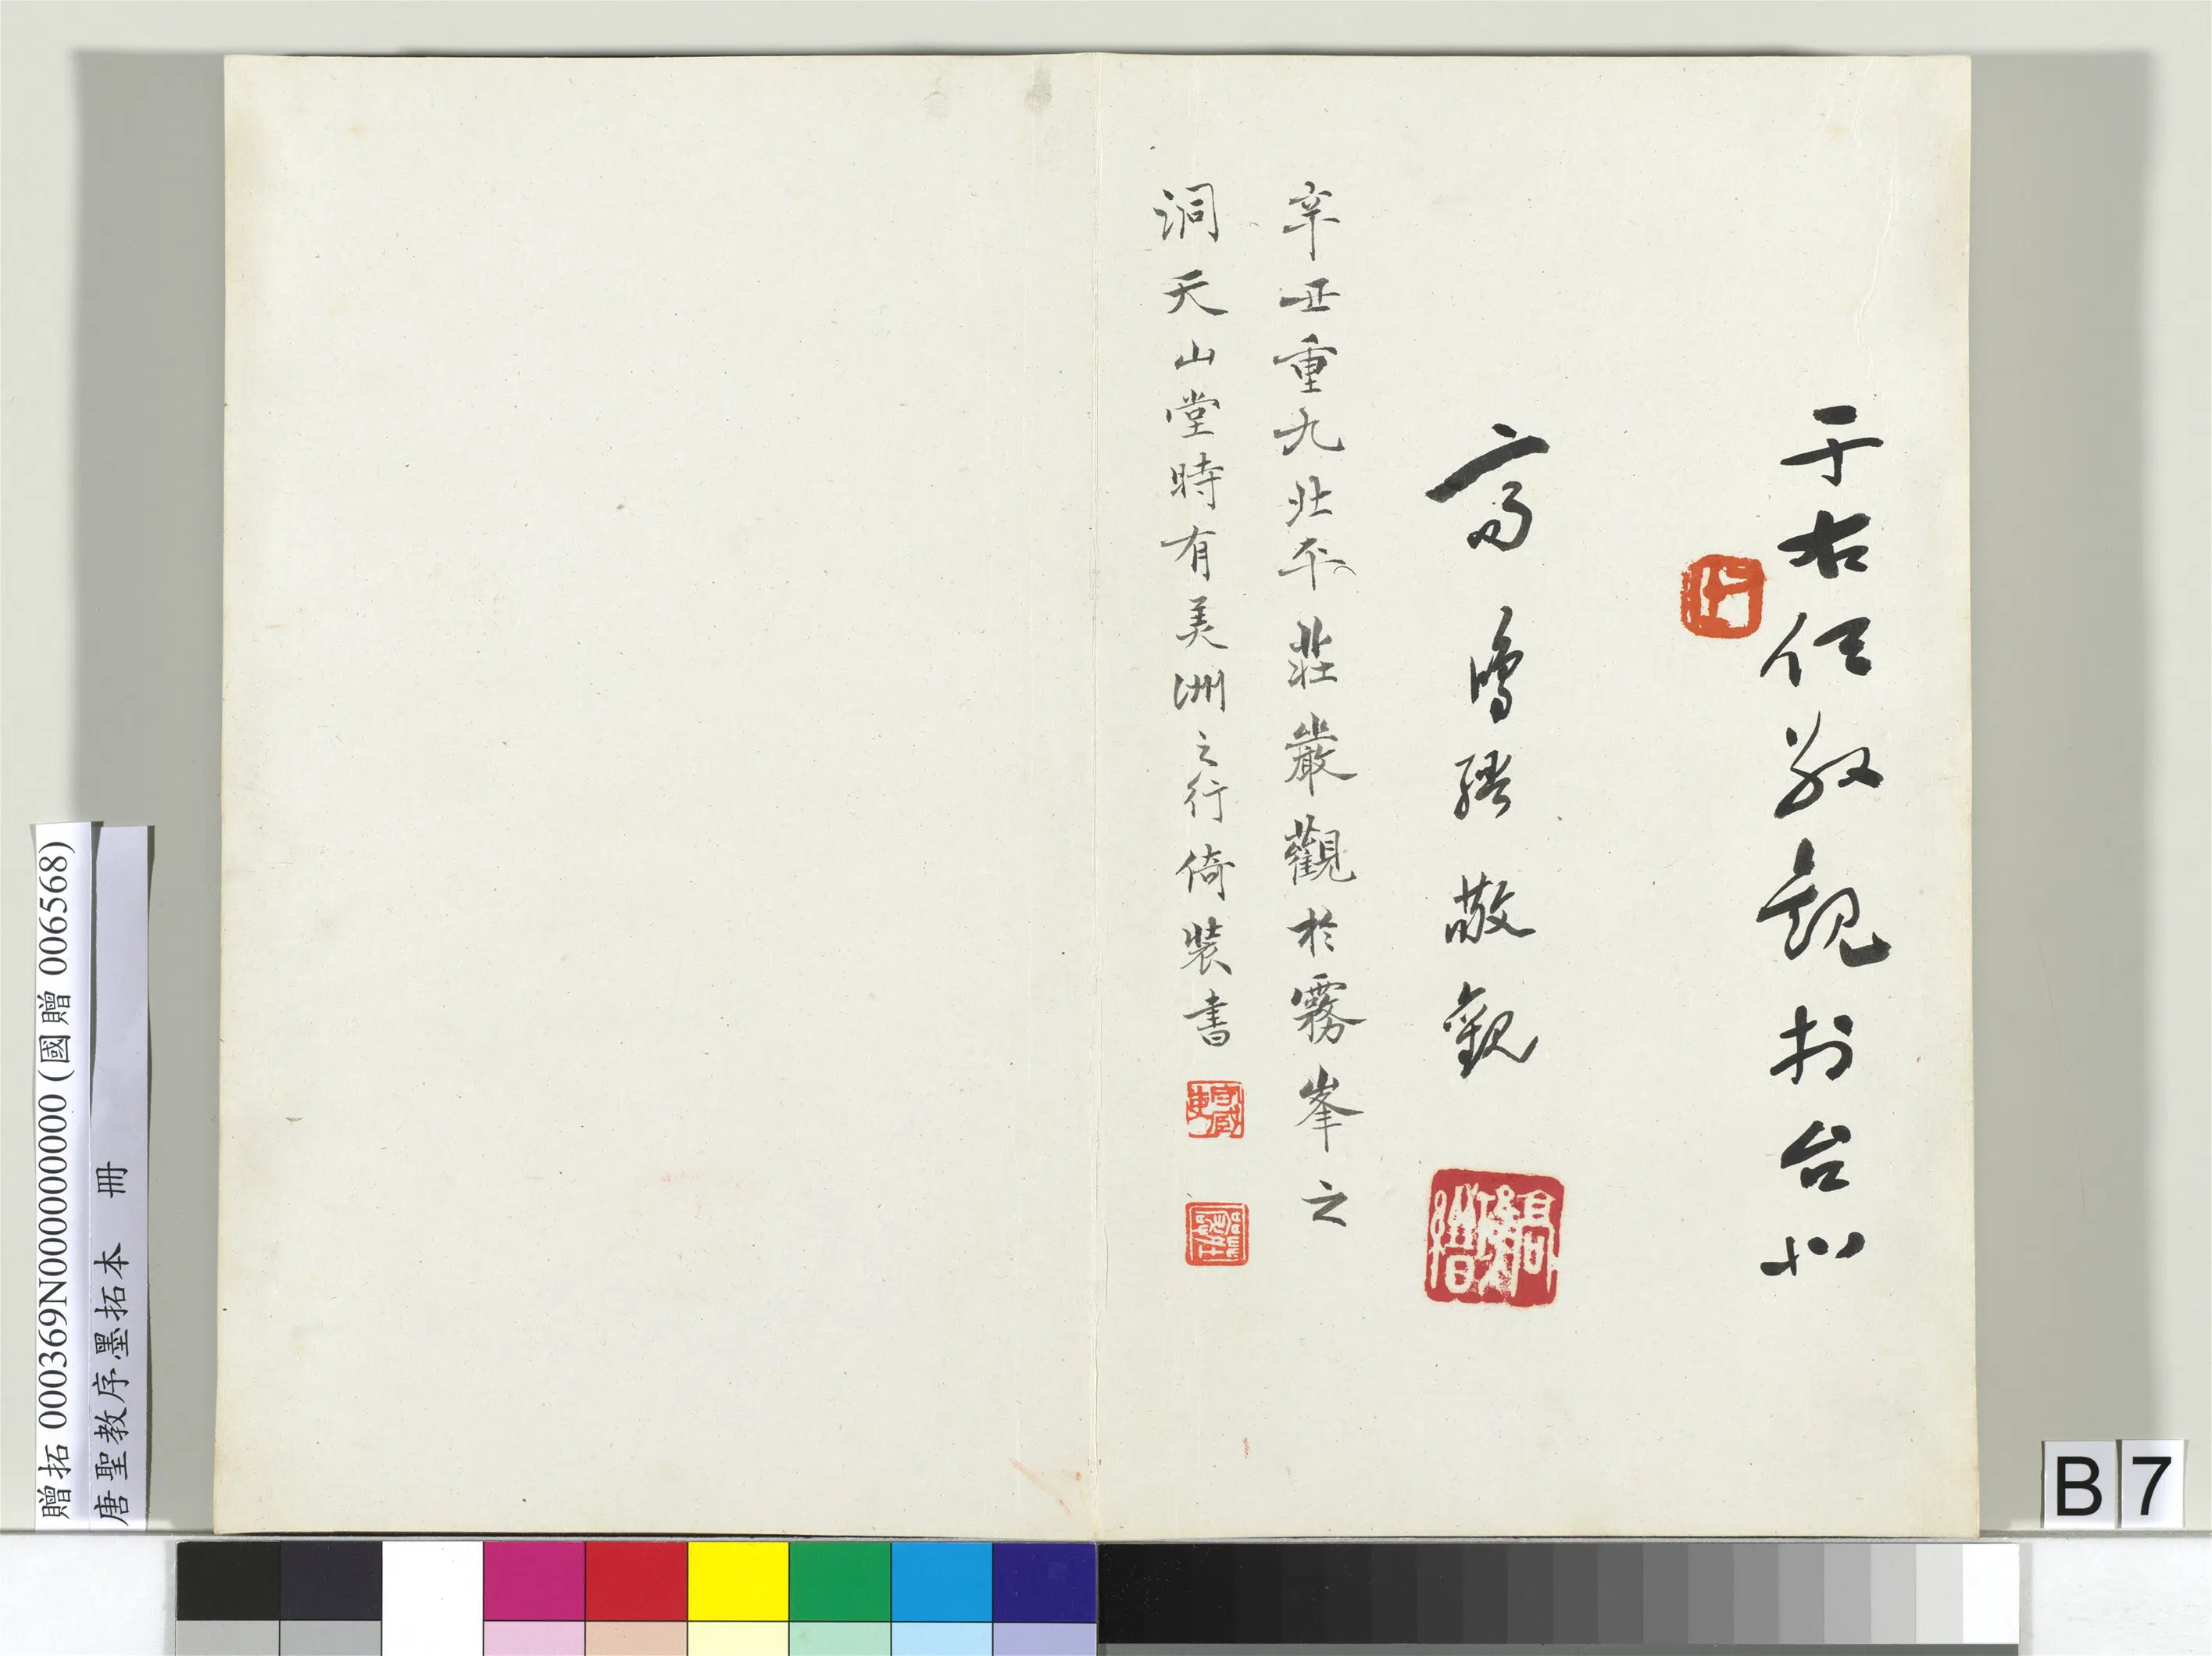 于右任敬觀於台北
高鴻縉敬觀
高鴻縉
辛丑重九北平莊嚴觀於霧峯之
洞天山堂時有美洲之行倚裝書
贈拓 000369N000000000 (國贈 006568)
唐聖教序墨拓本 冊
B 7